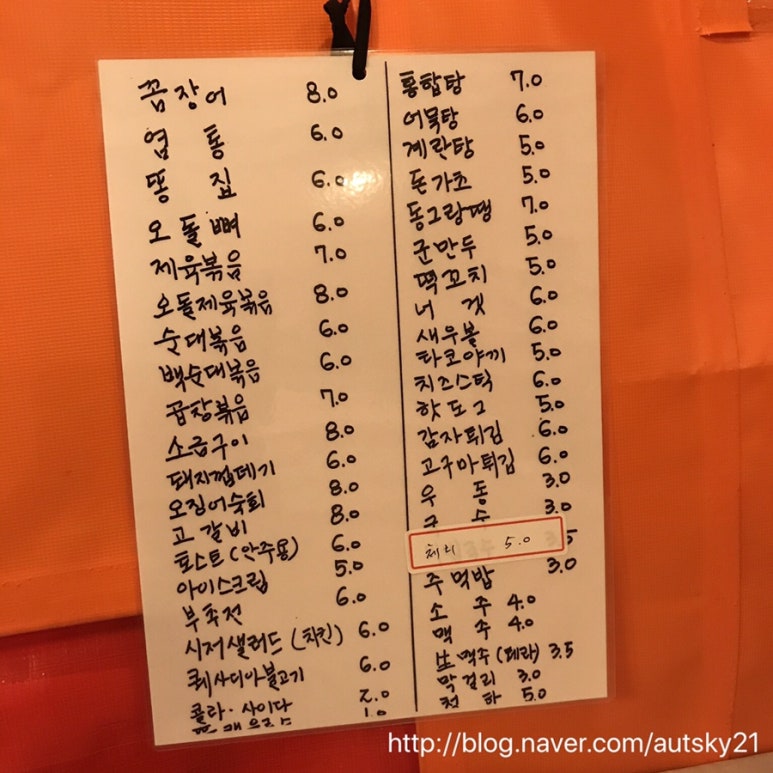 꼼장어 8.0
염통 6.0
똥집 6.0
오돌뼈 6.0
제육볶음 7.0
오돌제육볶음 8.0
순대볶음 6.0
백순대볶음 6.0
곱창볶음 7.0
소금구이 8.0
돼지껍데기 6.0
오징어숙회 8.0
고갈비 8.0
토스트(안주용) 6.0
아이스크림 5.0
부추전 6.0
시저샐러드(치킨) 6.0
퀘사디아불고기 6.0
콜라·사이다 2.0
1.0
홍합탕 7.0
어묵탕 6.0
계란탕 5.0
돈가츠 5.0
동그랑땡 7.0
군만두 5.0
떡꼬치 5.0
너겟 6.0
새우볼 6.0
타코야끼 5.0
치즈스틱 6.0
핫도그 5.0
감자튀김 6.0
고구마튀김 6.0
우동 3.0
국수 3.0
체리 5.0
주먹밥 3.0
소주 4.0
맥주 4.0
生맥주(테라) 3.5
막걸리 3.0
청하 5.0
http://blog.naver.com/autsky21